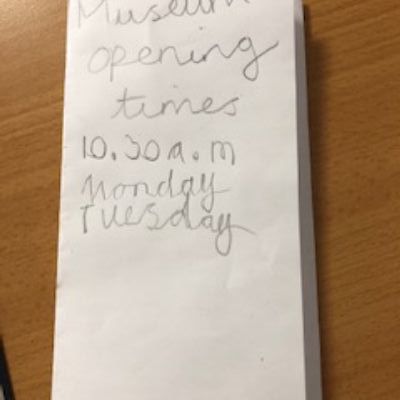 Museum
opening
times
10.30a.m
Monday
Tuesday